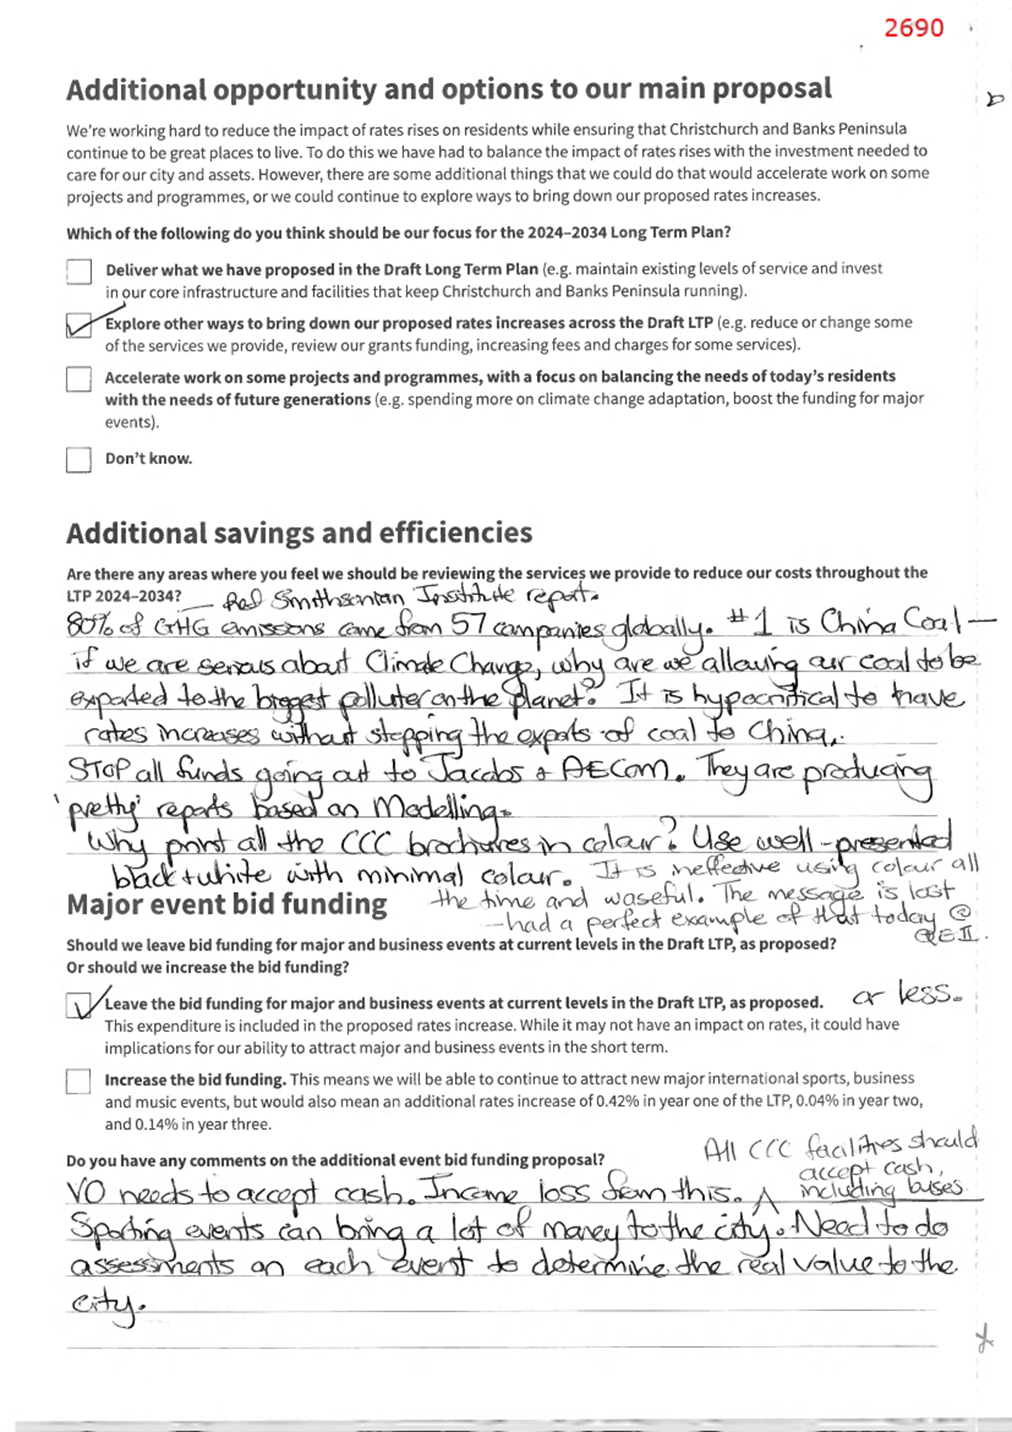 2690
Additional opportunity and options to our main proposal
We're working hard to reduce the impact of rates rises on residents while ensuring that Christchurch and Banks Peninsula
continue to be great places to live. To do this we have had to balance the impact of rates rises with the investment needed to
care for our city and assets. However, there are some additional things that we could do that would accelerate work on some
projects and programmes, or we could continue to explore ways to bring down our proposed rates increases.
Which of the following do you think should be our focus for the 2024–2034 Long Term Plan?
Deliver what we have proposed in the Draft Long Term Plan (e.g. maintain existing levels of service and invest
in our core infrastructure and facilities that keep Christchurch and Banks Peninsula running).
Explore other ways to bring down our proposed rates increases across the Draft LTP (e.g. reduce or change some
of the services we provide, review our grants funding, increasing fees and charges for some services).
Accelerate work on some projects and programmes, with a focus on balancing the needs of today's residents
with the needs of future generations (e.g. spending more on climate change adaptation, boost the funding for major
events).
Don't know.
Additional savings and efficiencies
Are there any areas where you feel we should be reviewing the services we provide to reduce our costs throughout the
LTP 2024–2034? — Ref Smithsonian Institute report.
80% of GHG emissions come from 57 companies globally. #1 is China Coal —
if we are serious about Climate Change, why are we allowing our coal to be
exported to the biggest polluter on the planet? It is hypocritical to have
rates increases without stopping the exports of coal to China.
STOP all funds going out to Jacobs + AECOM. They are producing
'pretty' reports based on Modelling.
Why print all the CCC brochures in colour? Use well-presented
black + white with minimal colour. It is ineffective using colour all
the time and waseful. The message is lost
— had a perfect example of that today @
QEII.
Major event bid funding
Should we leave bid funding for major and business events at current levels in the Draft LTP, as proposed?
Or should we increase the bid funding?
Leave the bid funding for major and business events at current levels in the Draft LTP, as proposed. or less.
This expenditure is included in the proposed rates increase. While it may not have an impact on rates, it could have
implications for our ability to attract major and business events in the short term.
Increase the bid funding. This means we will be able to continue to attract new major international sports, business
and music events, but would also mean an additional rates increase of 0.42% in year one of the LTP, 0.04% in year two,
and 0.14% in year three.
Do you have any comments on the additional event bid funding proposal?
VO needs to accept cash. Income loss from this.
All CCC facilities should
accept cash,
including buses
Sporting events can bring a lot of money to the city. Need to do
assessments on each event to determine the real value to the
city.